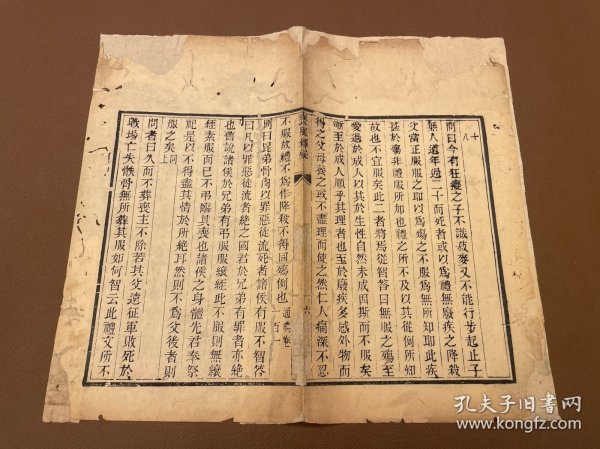 十八
問曰今有狂癡之子不識菽麥又不能行步起止了
無人道年過二十而死者或以為禮無廢疾之降殺
父當正服服之耶以為殤之不服為無所知耶此疾
甚於殤非禮服所加也禮之所不及以其從例所知
故也不宜服矣此二者將焉從智答曰無服之殤至
愛過於成人以其於生性自然未成因斯而不服矣
至於成人順乎其理者也至於廢疾多感外物而
得之父母養之或不盡理而使之然仁人痛深不忍
不服故禮不為作降殺不得同殤例也通典卷一百一
問曰昆弟骨肉以罪惡徒流死者諸侯有服不智答
曰凡以罪惡徒流者絕之國君於兄弟有罪者亦絕
也舊說諸侯於兄弟有弔服服縗絰此不服則無縗
絰素服而已不弔臨其喪也諸侯之身體先君奉祭
祀是以不得盡其情於所絕耳然則不為父後者則
服之矣同上
問者曰久而不葬喪主不除若其父遠征軍敗死於
戰場亡失骸骨無所葬其服如何智云此禮文所不
孔夫子旧书网
www.kongfz.com